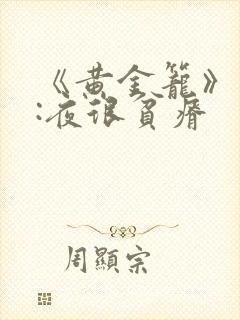 《黄金籠》
:夜很貧瘠
周顯宗